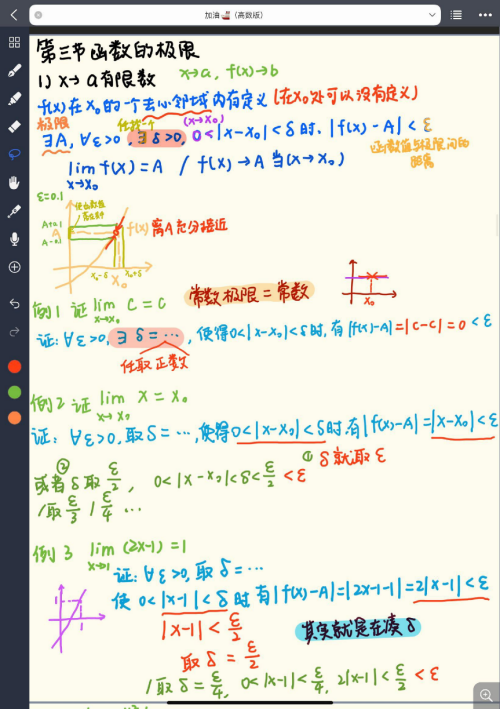 加油🚢（高数版）
第三节 函数的极限
1) x→a有限数 x→a, f(x)→b
f(x)在x₀的一个去心邻域内有定义 (在x₀处可以没有定义)
极限 任找一个 (x→x₀)
∃A, ∀ε>0, ∃δ>0, 0<|x-x₀|<δ时, |f(x)-A|<ε
函数值与极限间的距离
lim f(x)=A / f(x)→A 当(x→x₀)
x→x₀
ε=0.1
A+0.1
A
A-0.1
f(x)离A充分接近
x₀-δ x₀ x₀+δ
常数极限=常数
x₀
例1 证 lim C=C
x→x₀
证: ∀ε>0, ∃δ=…, 使得0<|x-x₀|<δ时, 有|f(x)-A|=|C-C|=0<ε
任取正数
例2 证 lim x=x₀
x→x₀
证: ∀ε>0, 取δ=…, 使得0<|x-x₀|<δ时, 有|f(x)-A|=|x-x₀|<ε
① δ就取ε
②
或者δ取ε/2, 0<|x-x₀|<δ<ε/2<ε
/取ε/3 /ε/4 …
例3 lim (2x-1)=1
x→1
证: ∀ε>0, 取δ=…
使0<|x-1|<δ时有|f(x)-A|=|2x-1-1|=2|x-1|<ε
1
1
|x-1|<ε/2
其实就是在凑δ
取δ=ε/2
/取δ=ε/4, 0<|x-1|<ε/4, 2|x-1|<ε/2<ε